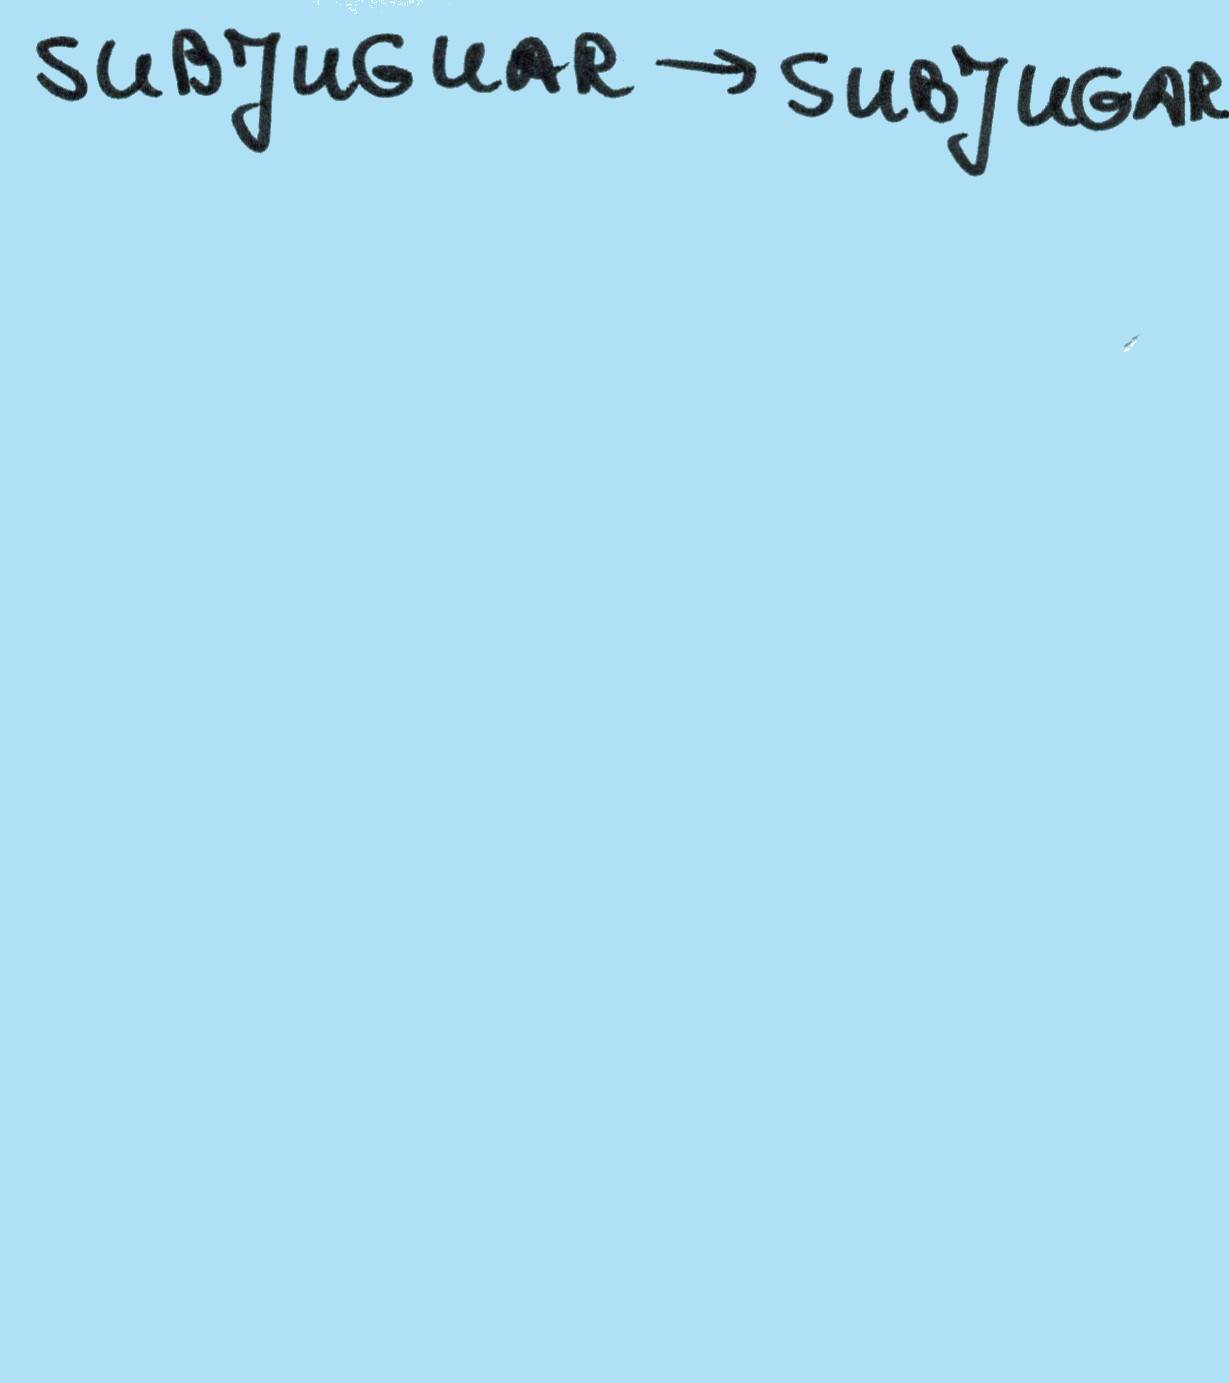 SUBJUGUAR → SUBJUGAR